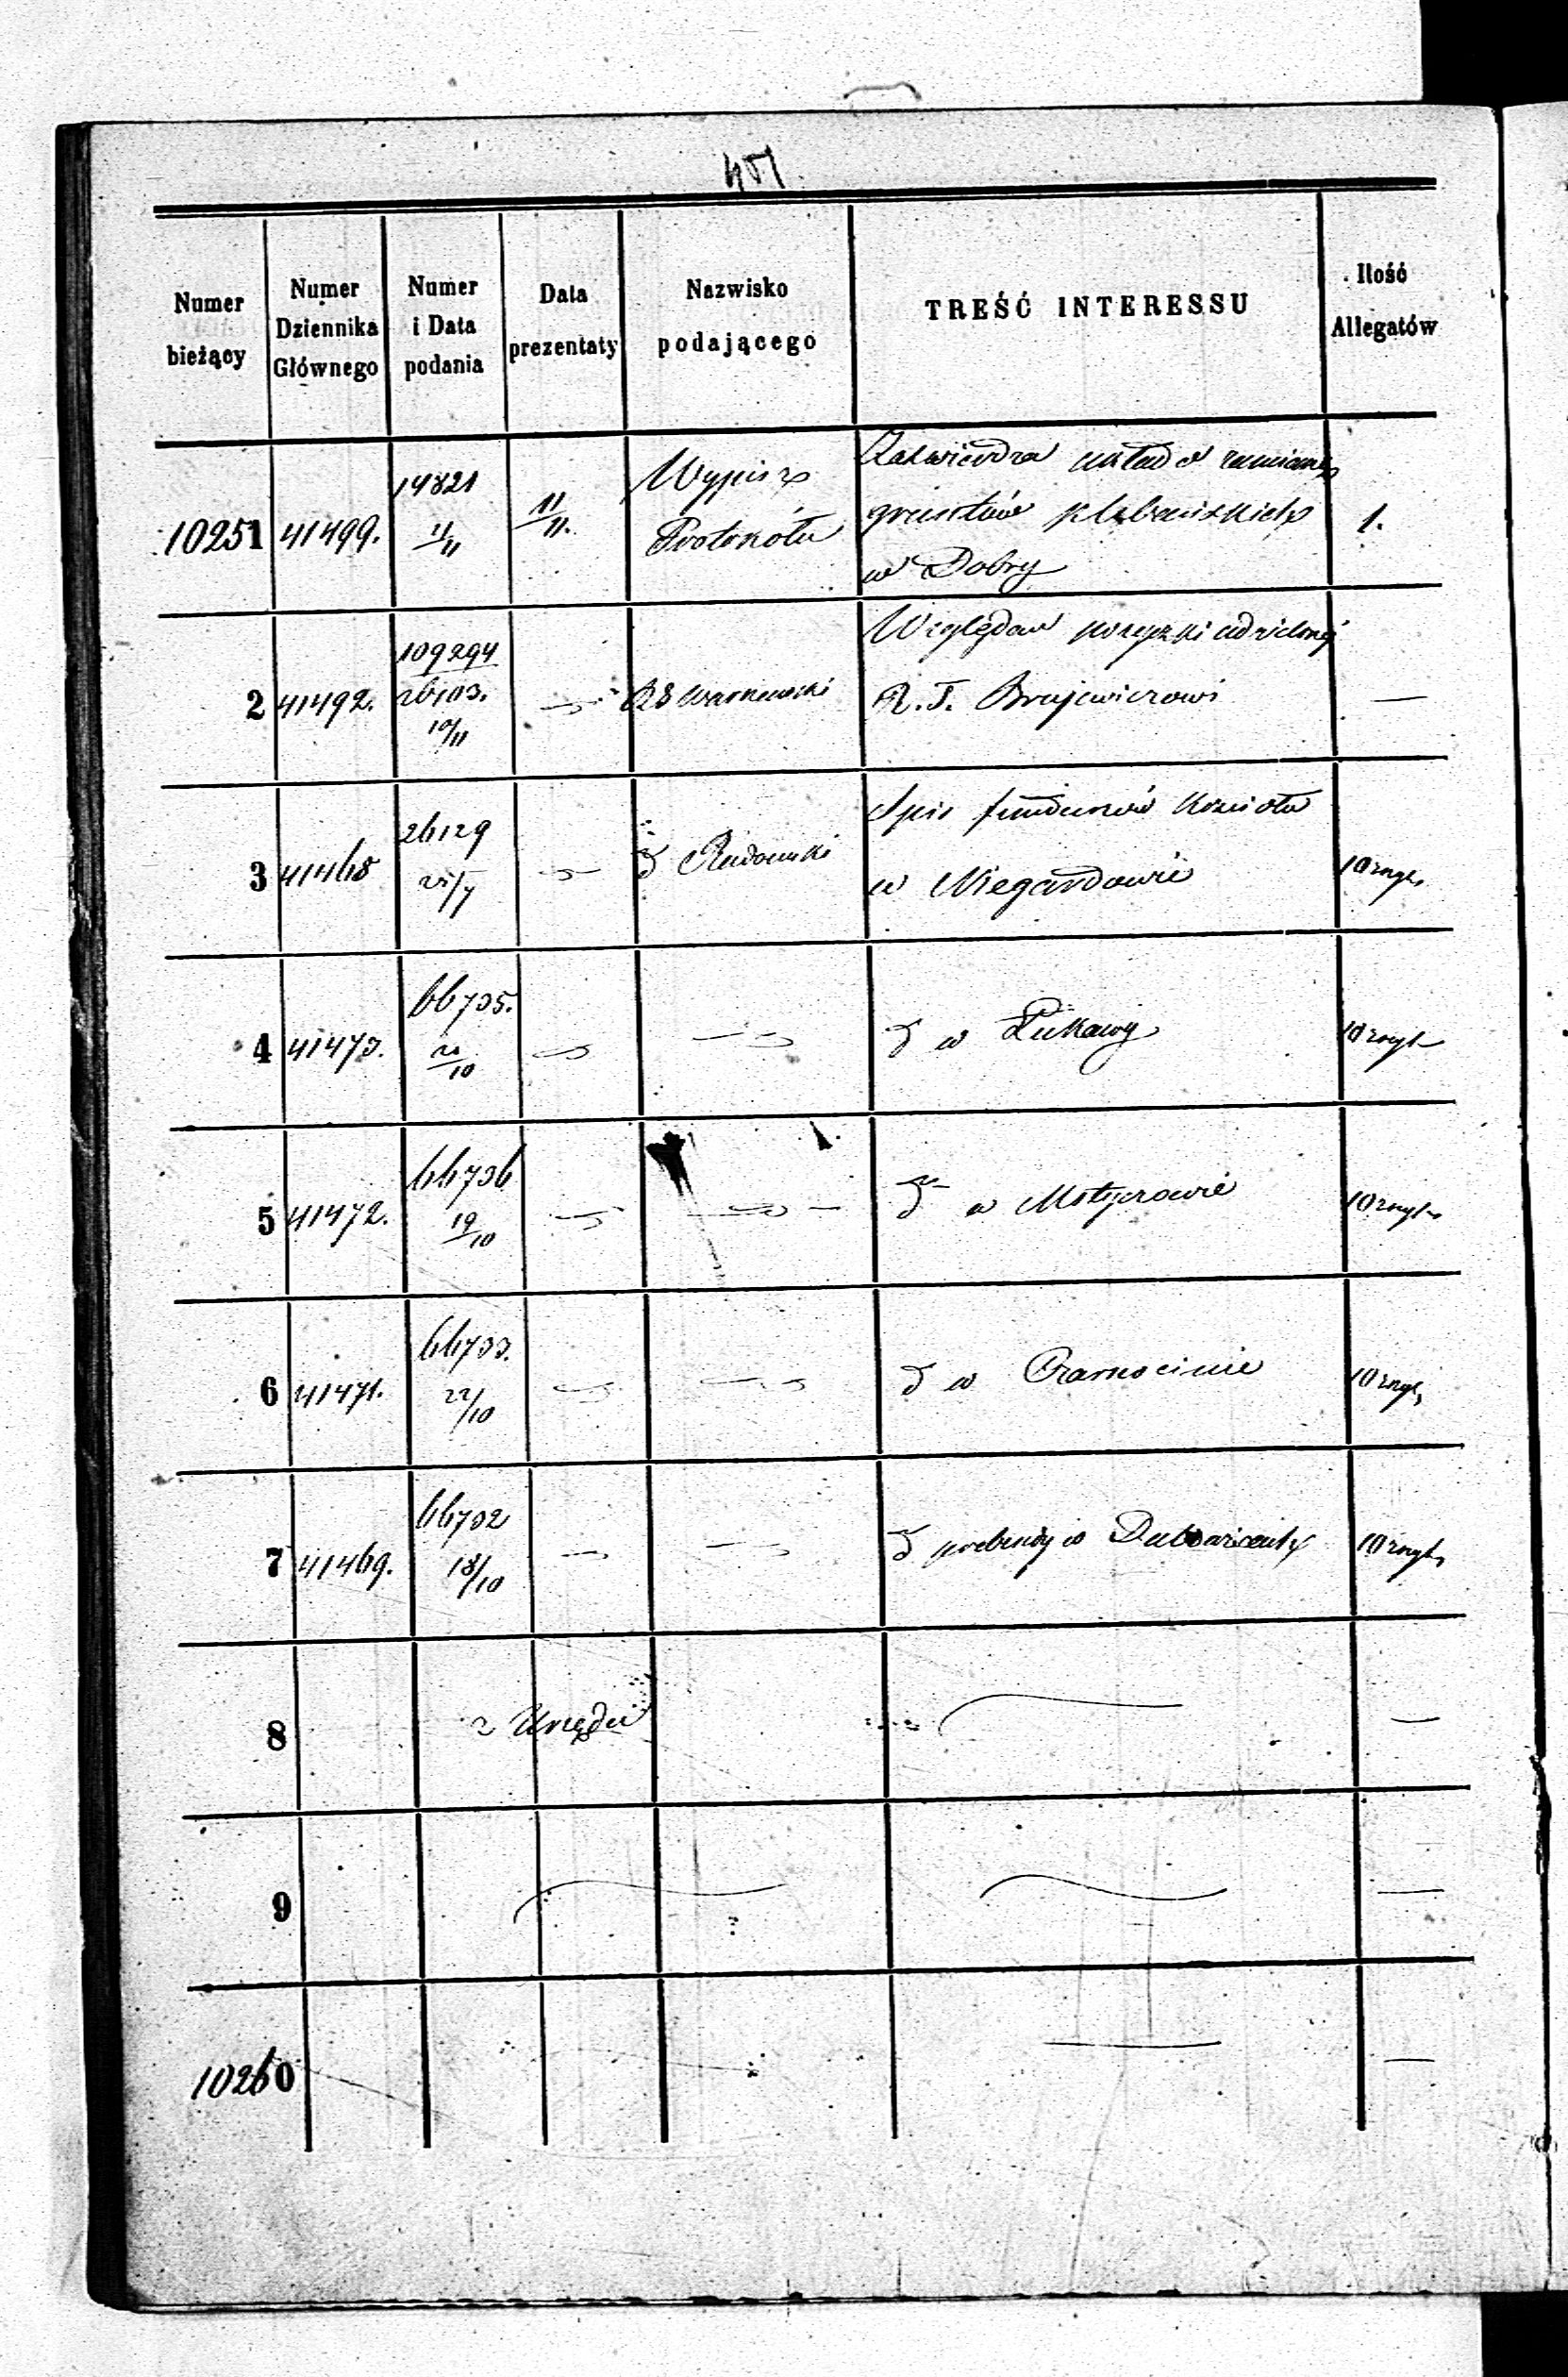 401
Numer bieżący
Numer Dziennika Głównego
Numer i Data podania
Data prezentaty
Nazwisko podającego
TREŚĆ INTERESSU
Ilość Allegatów
10251 41499. 14821 11/11 11/11. Wypis z Protokółu Zatwierdza układ o zamianę gruntów plebańskich w Dobry 1.
2 41492. 109294 26103. 10/11 Względem pożyczki udzielonej R. T. Brujewiczowi —
3 41468 26129 Radomski Spis funduszów Kościoła w Niegardowie 10 egz.
4 41473. 66735. 20/10 w Pukawy 10 egz.
5 41472. 66736 19/10 w Motyczowie 10 egz.
6 41471. 66733. 22/10 w Czarnocinie 10 egz.
7 41469. 66732 18/10 prebendy w 10 egz.
8 z Urzędu —
9 —
10260 —